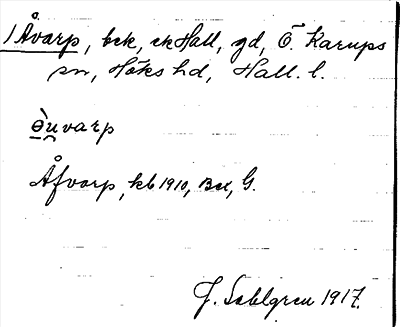 1 Åvarp, bek, ek Hall, gd, Ö. Karups
sn, Höks hd, Hall. l.
ə̀u̯varp
Åfvarp, kb 1910, Bd, G.
J. Sahlgren 1917.